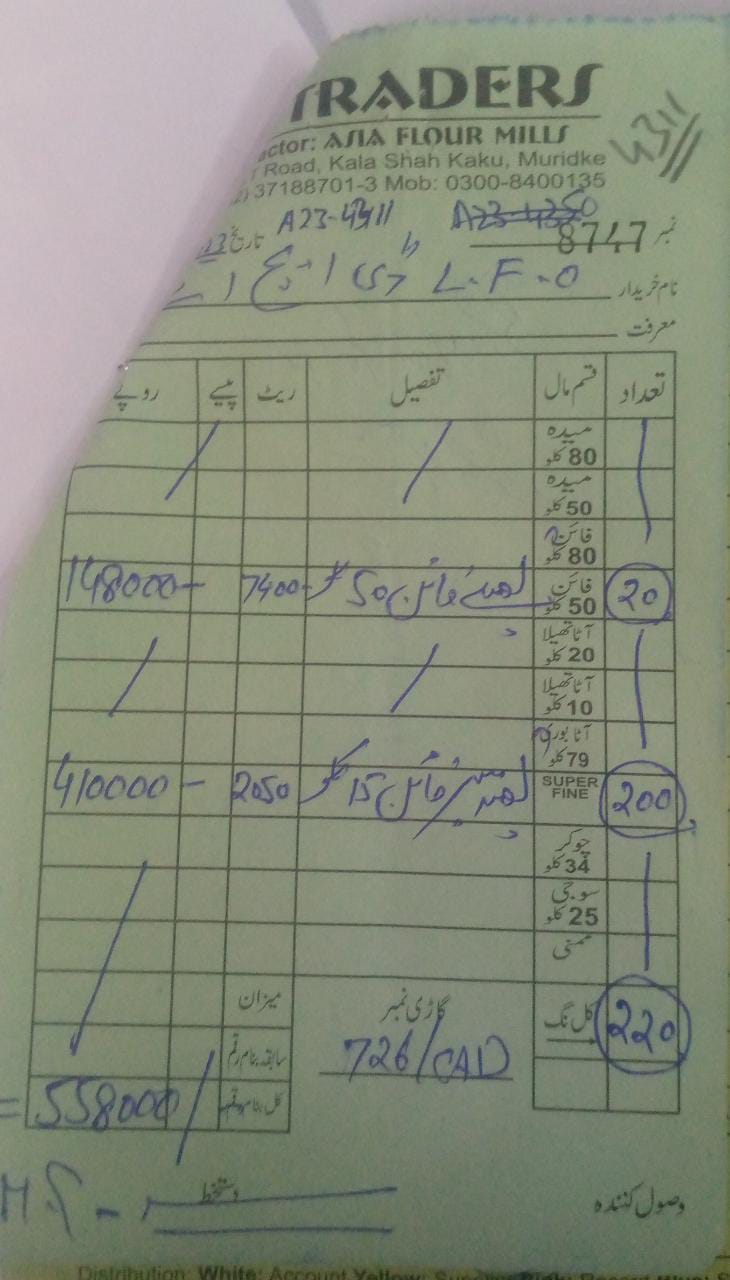 TRADERS
actor: ASIA FLOUR MILLS
Road, Kala Shah Kaku, Muridke
37188701-3 Mob: 0300-8400135
4311
A23-4311
نمبر 8747 تاریخ
نام خریدار L.F.O ڈی ایچ اے
معرفت
تعداد قسم مال تفصیل ریٹ پیسے روپے
میدہ 80 کلو
میدہ 50 کلو
فائن 80 کلو
20 فائن 50 کلو فائن 50 کلو 7400 148000
آٹا تھیلا 20 کلو
آٹا تھیلا 10 کلو
آٹا بوری 79 کلو
200 SUPER FINE فائن 15 کلو 2050 410000
چوکر 34 کلو
سوجی 25 کلو
ممنی
220 کل نگ گاڑی نمبر میزان
726/CAD سابقہ بنام رقم
کل بنام رقم 558000
وصول کنندہ دستخط
Distribution: White: Account Yellow: